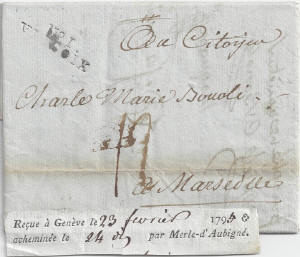 Au Citoyen
Charle Marie Bouoli
à Marseille
Reçue à Genève le 23 fevrier 1795 &
acheminée le 24 d° par Merle-d'Aubigné.